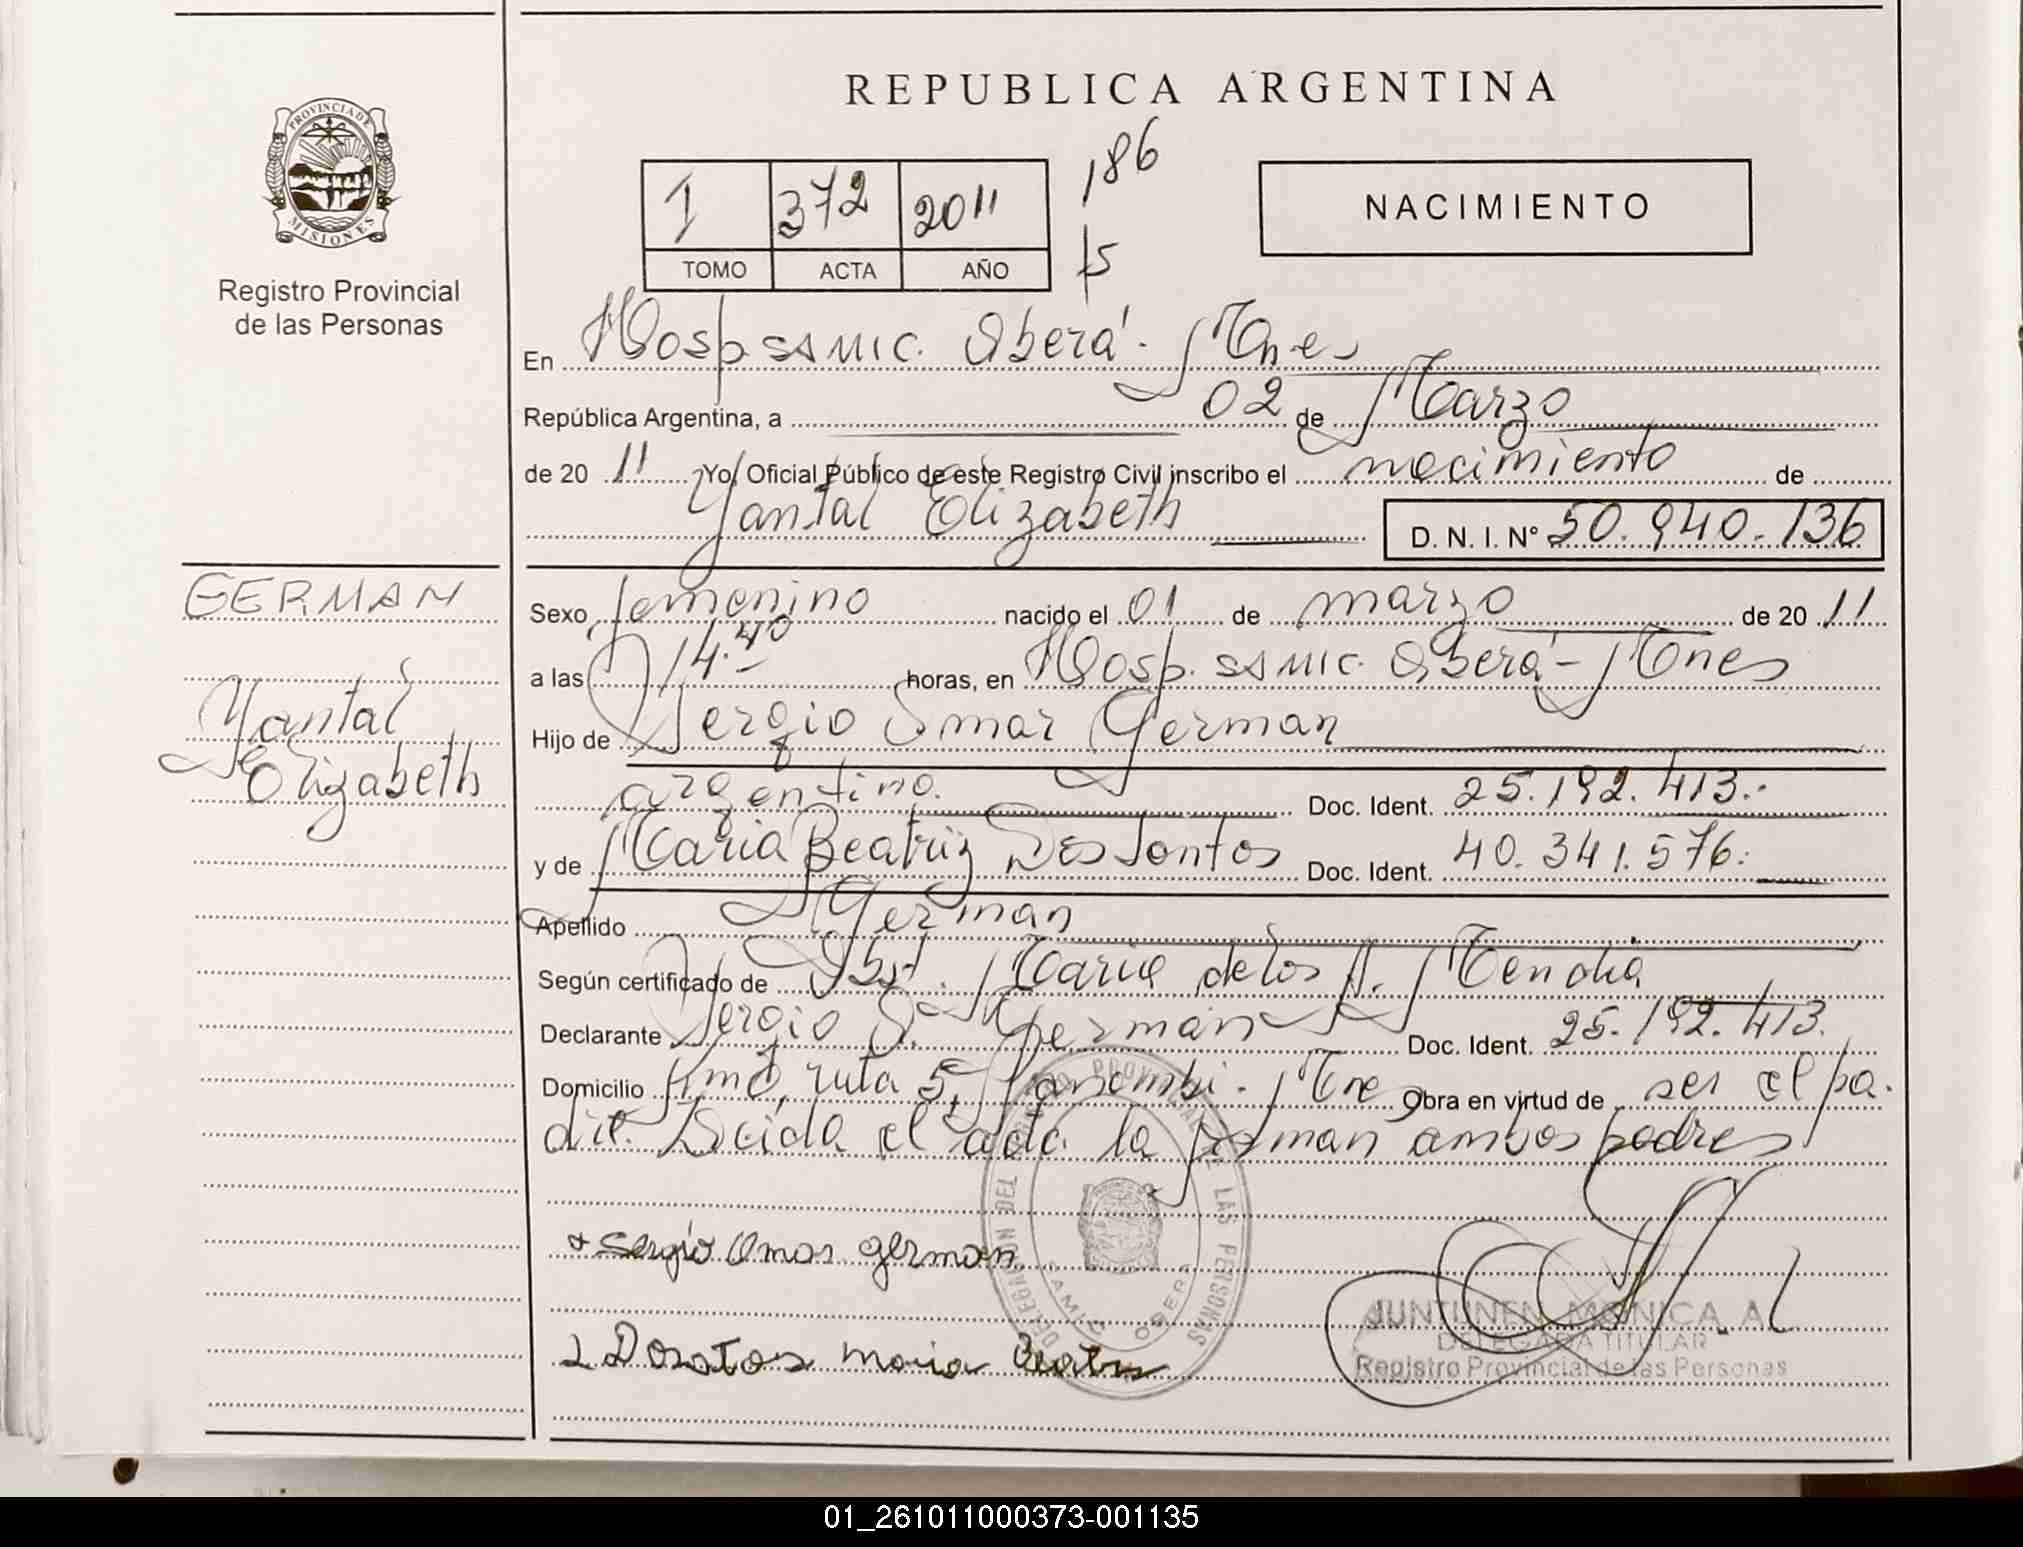 REPUBLICA ARGENTINA
PROVINCIA DE MISIONES
Registro Provincial
de las Personas
I 372 2011 186
TOMO ACTA AÑO 15
NACIMIENTO
En Hosp. SAMIC. Oberá - Mnes
República Argentina, a 02 de Marzo
de 20 11 Yo, Oficial Público de este Registro Civil inscribo el nacimiento de
Yantal Elizabeth D. N. I. Nº 50.940.136
GERMAN
Yantal
Elizabeth
Sexo femenino nacido el 01 de marzo de 20 11
a las 14.40 horas, en Hosp. SAMIC. Oberá - Mnes
Hijo de Sergio Omar German
argentino. Doc. Ident. 25.192.413.-
y de Maria Beatriz Dos Santos Doc. Ident. 40.341.576.
Apellido German
Según certificado de Obst. Maria de los A.
Declarante Sergio O. German Doc. Ident. 25.192.413.
Domicilio Kmo, ruta 5, Panambi - Mnes Obra en virtud de ser el pa.
dre. Leida el acta la firman ambos padres
Sergio Omar german
Dosatos maria Beatris
DELEGACION DEL REGISTRO PROVINCIAL DE LAS PERSONAS
SAMIC OBERA
JUNTUNEN MONICA A.
DELEGADA TITULAR
Registro Provincial de las Personas
01_261011000373-001135